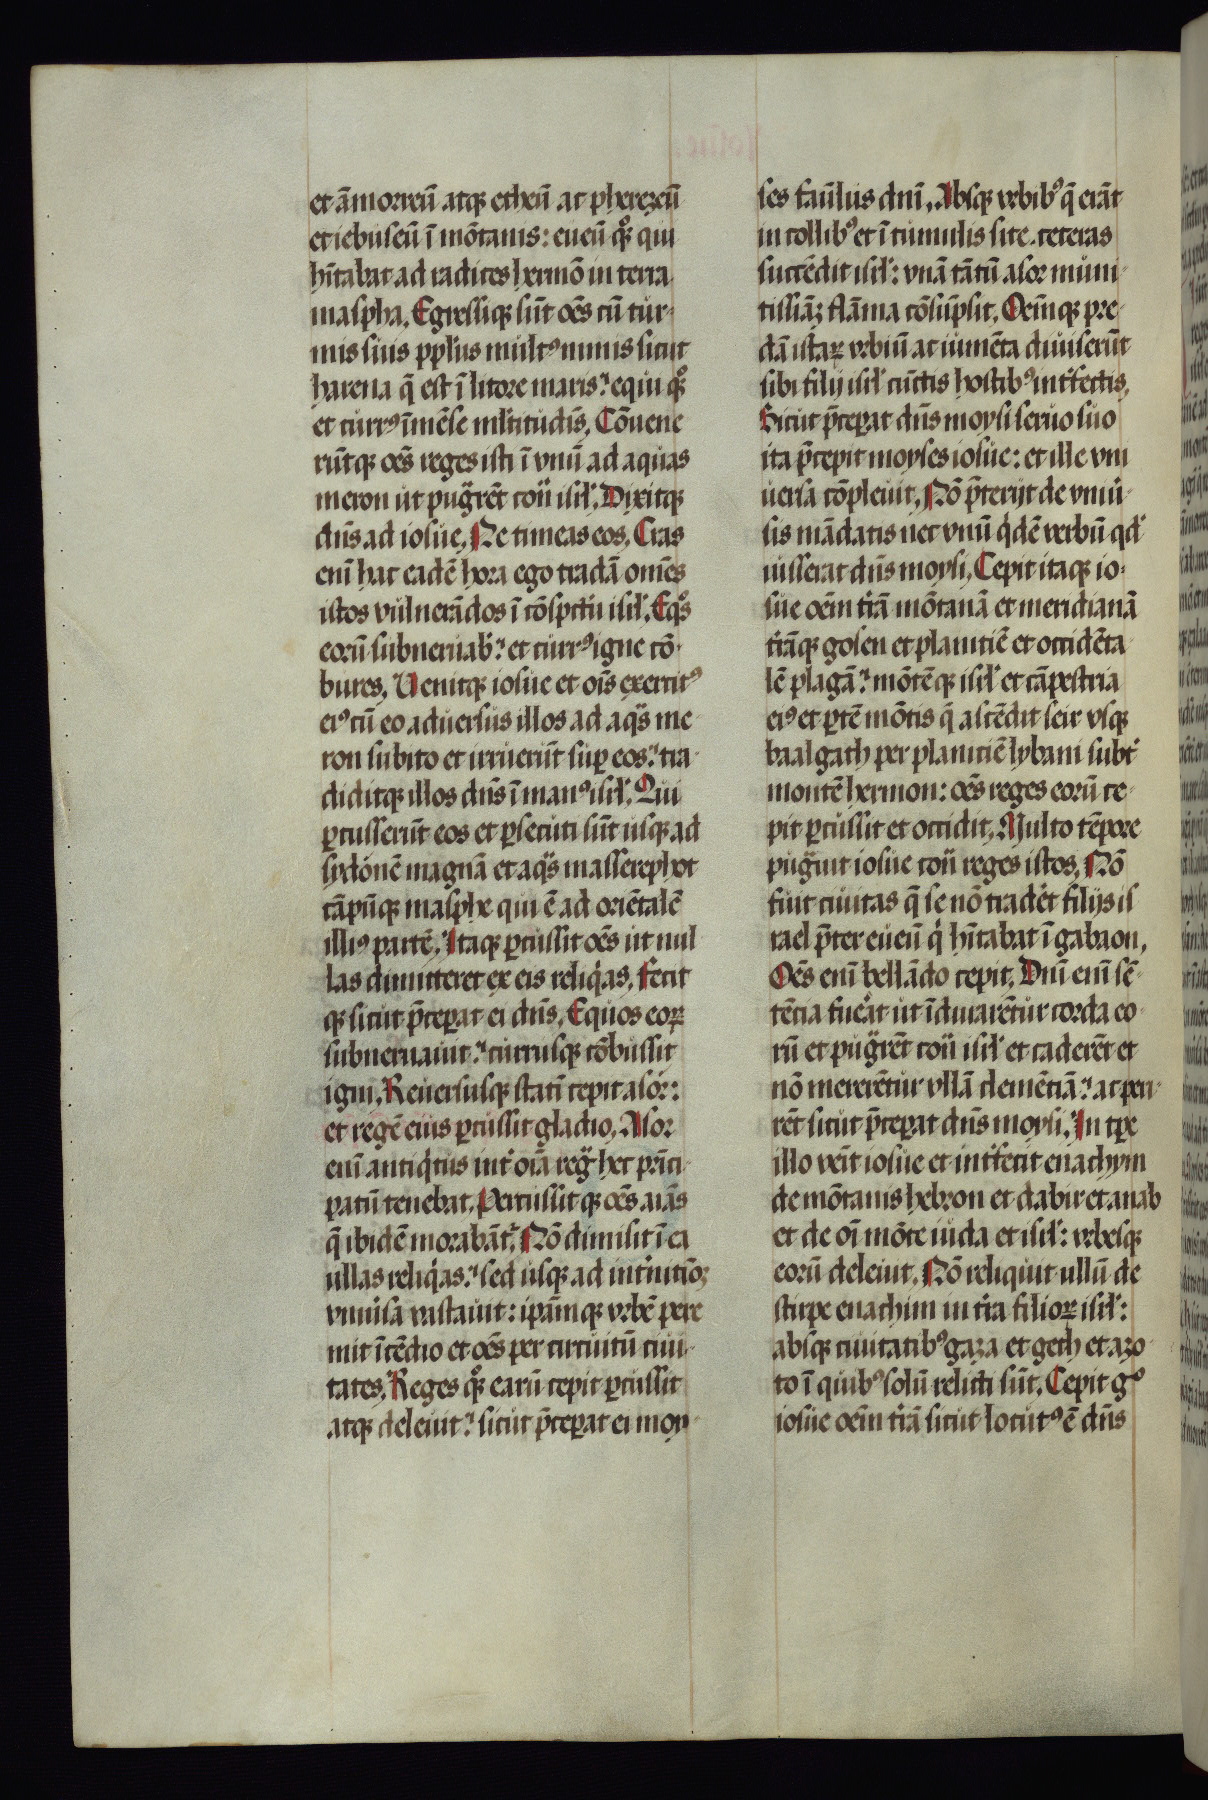 et āmorreū atqꝫ etheū ac pherezeū
et iebuseū ī mōtanis: eueū qͦꝫ qui
hītabat ad radices hermō in terra
maspha. Egressiqꝫ sūt oēs cū tur-
mis suis pplus multꝰ nimis sicut
harena q̄ est ī litore maris: equi qͦꝫ
et currꝰ īmēse ml̄titudīs, Cōuene
rūtqꝫ oēs reges isti ī vnū ad aquas
meron ut pugrēt cou isrl̄. Dixitqꝫ
dn̄s ad iosue, Ne timeas eos, Cras
enī hac eadē hora ego tradā omēs
istos vulnerādos ī cōspctu isrl̄. Eqͦs
eorū subneruabꝭ: et currꝰ igne cō-
bures, Uenitqꝫ iosue et oīs exercitꝰ
eiꝰ cū eo aduersus illos ad aqͣs me
ron subito et irruerūt suꝑ eos: tra-
diditqꝫ illos dn̄s ī manꝰ isrl̄. Qui
ꝑcusserūt eos et ꝑsecuti sūt usqꝫ ad
sydonē magnā et aqͣs masserephot
cāpūqꝫ masphe qui ē ad oriētalē
illiꝰ partē, Itaqꝫ ꝑcussit oēs ut nul
las dimitteret ex eis reliqͥas, fecit
qꝫ sicut p̄ceꝑat ei dn̄s, Equos eoꝝ
subneruauit: currusqꝫ cōbussit
igni, Reuersusqꝫ statī cepit asor:
et regē eius ꝑcussit gladio, Asor
enī antiqͥtus int̓ oīa regͣ hec prīci
patū tenebat, Percussitqꝫ oēs aīas
q̄ ibidē morabāt᷑, Nō dimisit ī ea
ullas reliqͥas: sed usqꝫ ad int̓nitiōꝫ
vniu̓sa vastauit: ip̄amqꝫ vrbē pere
mit īcēdio et oēs per circuitū ciui-
tates, Reges qͦꝫ earū cepit ꝑcussit
atqꝫ deleuit: sicut p̄ceꝑat ei moy
ses famlus dn̄i, Absqꝫ vrbibꝰ q̄ erāt
in collibꝰ et ī tumulis site, ceteras
succēdit isrl̄: vnā tātū asor muni-
tissiāꝫ flāma cōsūpsit, Oēmqꝫ pre-
dā istaꝝ vrbiū ac iumēta diuiserūt
sibi filij isrl̄ cūctis hostibꝰ int̓fectis,
Sicut p̄ceꝑat dn̄s moysi seruo suo
ita p̄cepit moyses iosue: et ille vni
uersa cōpleuit, Nō p̄terijt de vniu̓-
sis mādatis nec vnū qͥdē verbū qd̓
iusserat dn̄s moysi, Cepit itaqꝫ io-
sue oēm t̓rā mōtanā et meridianā
t̓rāqꝫ gosen et planitiē et occidēta
lē plagā: mōtēqꝫ isrl̄ et cāpestria
eiꝰ et ꝑtē mōtis q̄ ascēdit seir vsqꝫ
baalgath per planitiē lybani subt̓
montē hermon: oēs reges eorū ce-
pit ꝑcussit et occidit, Multo tēpore
pugͣuit iosue cou reges istos, Nō
fuit ciuitas q̄ se nō trade̓t filijs is
rael p̄ter eueū qͥ hītabat ī gabaon,
Oēs enī bellādo cepit, Dn̄i enī sē-
tēcia fue̓at ut īdurarētur corda eo
rū et pugrēt cou isrl̄ et caderēt et
nō mererētur vllā clemētiā: ac peri-
rēt sicut p̄ceꝑat dn̄s moysi, In tꝑe
illo venīt iosue et int̓fecit enachym
de mōtanis hebron et dabir et anab
et de oī mōte iuda et isrl̄: vrbesqꝫ
eorū deleuit, Nō reliquit ullū de
stirpe enachim in t̓ra filioꝝ isrl̄:
absqꝫ ciuitatibꝰ gaza et geth et azo-
to ī quibꝰ solū relicti sūt, Cepit gͦ
iosue oēm t̓rā sicut locutꝰ ē dn̄s